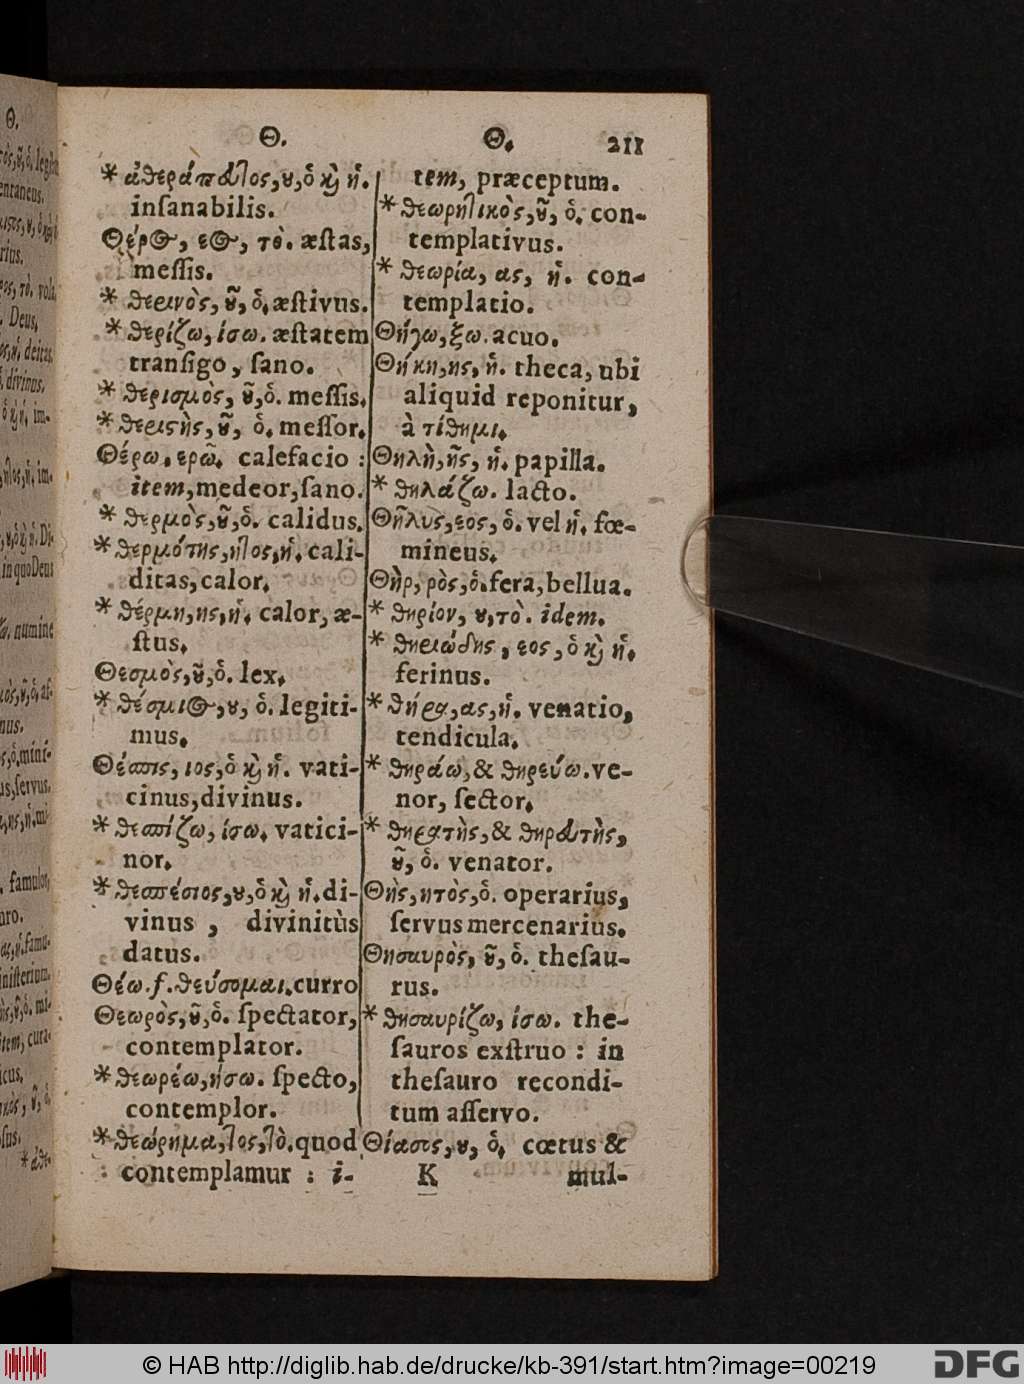 Θ.
Θ.
211
* ἀθεράπευτος, ου, ὁ καὶ ἡ.
inſanabilis.
Θέρος, εος, τὸ. æſtas,
meſſis.
* θερινὸς, οῦ, ὁ. æſtivus.
* θερίζω, ίσω. æſtatem
tranſigo, ſano.
* θερισμὸς, οῦ, ὁ. meſſis.
* θεριστὴς, οῦ, ὁ. meſſor.
Θέρω. ερῶ. calefacio :
item, medeor, ſano.
* θερμὸς, οῦ, ὁ. calidus.
* θερμότης, ητος, ἡ. cali-
ditas, calor.
* θέρμη, ης, ἡ. calor, æ-
ſtus.
Θεσμὸς, οῦ, ὁ. lex.
* θέσμιος, ου, ὁ. legiti-
mus.
Θέσπις, ιος, ὁ καὶ ἡ. vati-
cinus, divinus.
* θεσπίζω, ίσω. vatici-
nor.
* θεσπέσιος, ου, ὁ καὶ ἡ. di-
vinus , divinitùs
datus.
Θέω. f. θεύσομαι. curro
Θεωρὸς, οῦ, ὁ. ſpectator,
contemplator.
* θεωρέω, ήσω. ſpecto,
contemplor.
* θεώρημα, τος, τὸ. quod
contemplamur : i-
tem, præceptum.
* θεωρητικὸς, οῦ, ὁ. con-
templativus.
* θεωρία, ας, ἡ. con-
templatio.
Θήγω, ξω. acuo.
Θήκη, ης, ἡ. theca, ubi
aliquid reponitur,
à τίθημι.
Θηλὴ, ῆς, ἡ. papilla.
* θηλάζω. lacto.
Θῆλυς, εος, ὁ. vel ἡ. fœ-
mineus.
Θὴρ, ρὸς, ὁ. fera, bellua.
* θηρίον, ου, τὸ. idem.
* θηριώδης , εος, ὁ καὶ ἡ.
ferinus.
* θήρα, ας, ἡ. venatio,
tendicula.
* θηράω, & θηρεύω. ve-
nor, ſector.
* θηρατὴς, & θηρευτὴς,
οῦ, ὁ. venator.
Θὴς, ητὸς, ὁ. operarius,
ſervus mercenarius.
Θησαυρὸς, οῦ, ὁ. theſau-
rus.
* θησαυρίζω, ίσω. the-
ſauros exſtruo : in
theſauro recondi-
tum aſſervo.
Θίασος, ου, ὁ. cœtus &
K
mul-
© HAB http://diglib.hab.de/drucke/kb-391/start.htm?image=00219
DFG